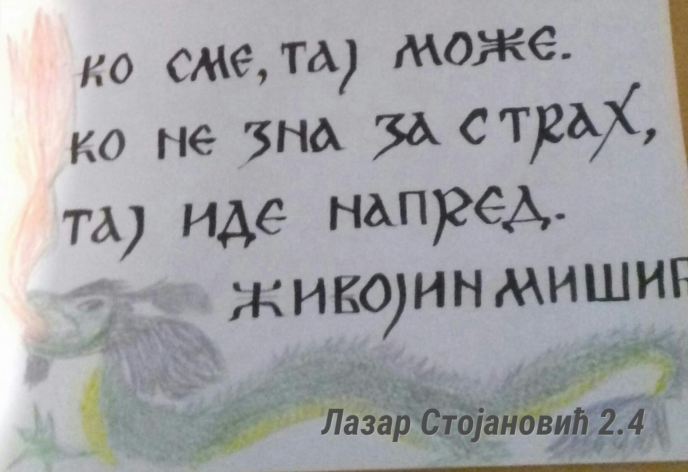 ко сме, тај може.
ко не зна за страх,
тај иде напред.
живојин мишић
Лазар Стојановић 2.4